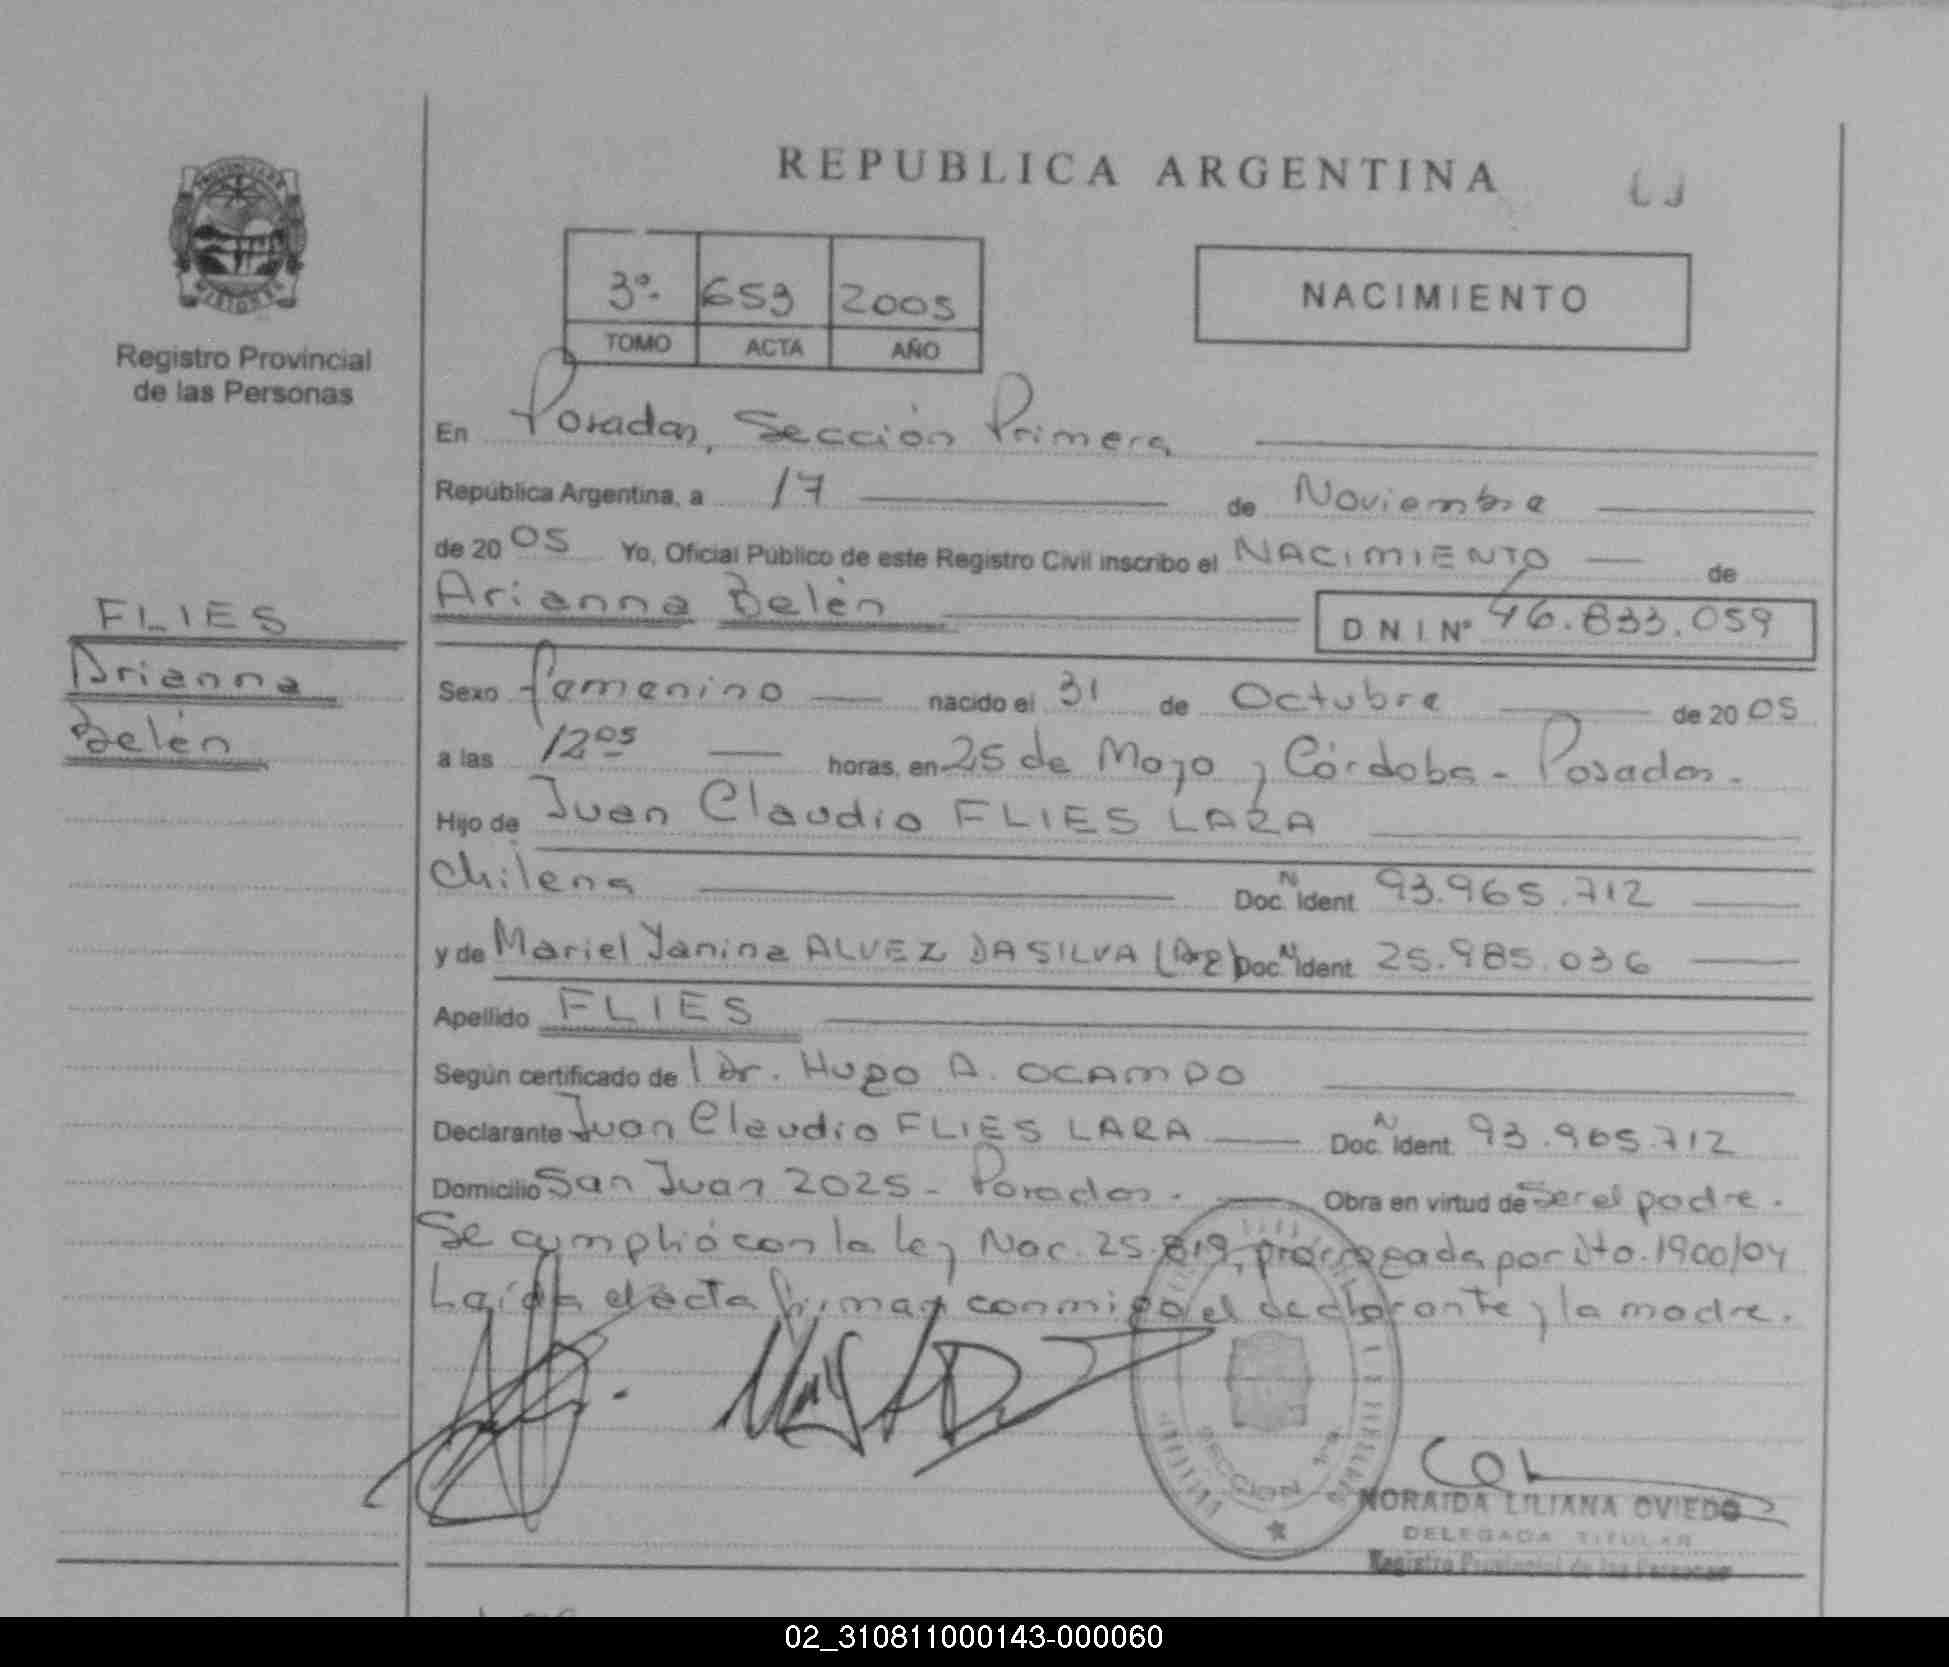 REPUBLICA ARGENTINA
PROVINCIA DE MISIONES
Registro Provincial
de las Personas
3º 653 2005
TOMO ACTA AÑO
NACIMIENTO
En Posadas, Sección Primera
República Argentina, a 17 de Noviembre
de 2005 Yo, Oficial Público de este Registro Civil inscribo el NACIMIENTO de
Arianna Belén DNI Nº 46.833.059
FLIES
Arianna
Belén
Sexo femenino nacido el 31 de Octubre de 2005
a las 12 05 horas, en 25 de Mayo y Córdoba - Posadas.
Hijo de Juan Claudio FLIES LARA
Chilena Doc. N Ident 93.965.712
y de Mariel Yanina ALVEZ DASILVA (Arg) Doc. N Ident 25.985.036
Apellido FLIES
Según certificado de l Dr. Hugo A. OCAMPO
Declarante Juan Claudio FLIES LARA Doc. N Ident. 93.965.712
Domicilio San Juan 2025 - Posadas. Obra en virtud de Ser el padre.
Se cumplió con la ley Nac. 25.819, prorrogada por Dto. 1900/04
Leída el acta firman conmigo el declarante y la madre.
SECCION
NORAIDA LILIANA OVIEDO
DELEGADA TITULAR
Registro Provincial de las Personas
02_310811000143-000060